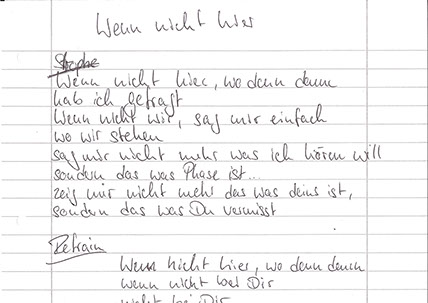 Wenn nicht hier
Strophe
Wenn nicht hier, wo denn dann
hab ich gefragt
Wenn nicht wir, sag mir einfach
wo wir stehen
sag mir nicht mehr was ich hören will
sondern das was Phase ist...
zeig mir nicht mehr das was deins ist,
sondern das was Du vermisst
Refrain
Wenn nicht hier, wo denn dann
wenn nicht bei Dir
nicht bei Dir